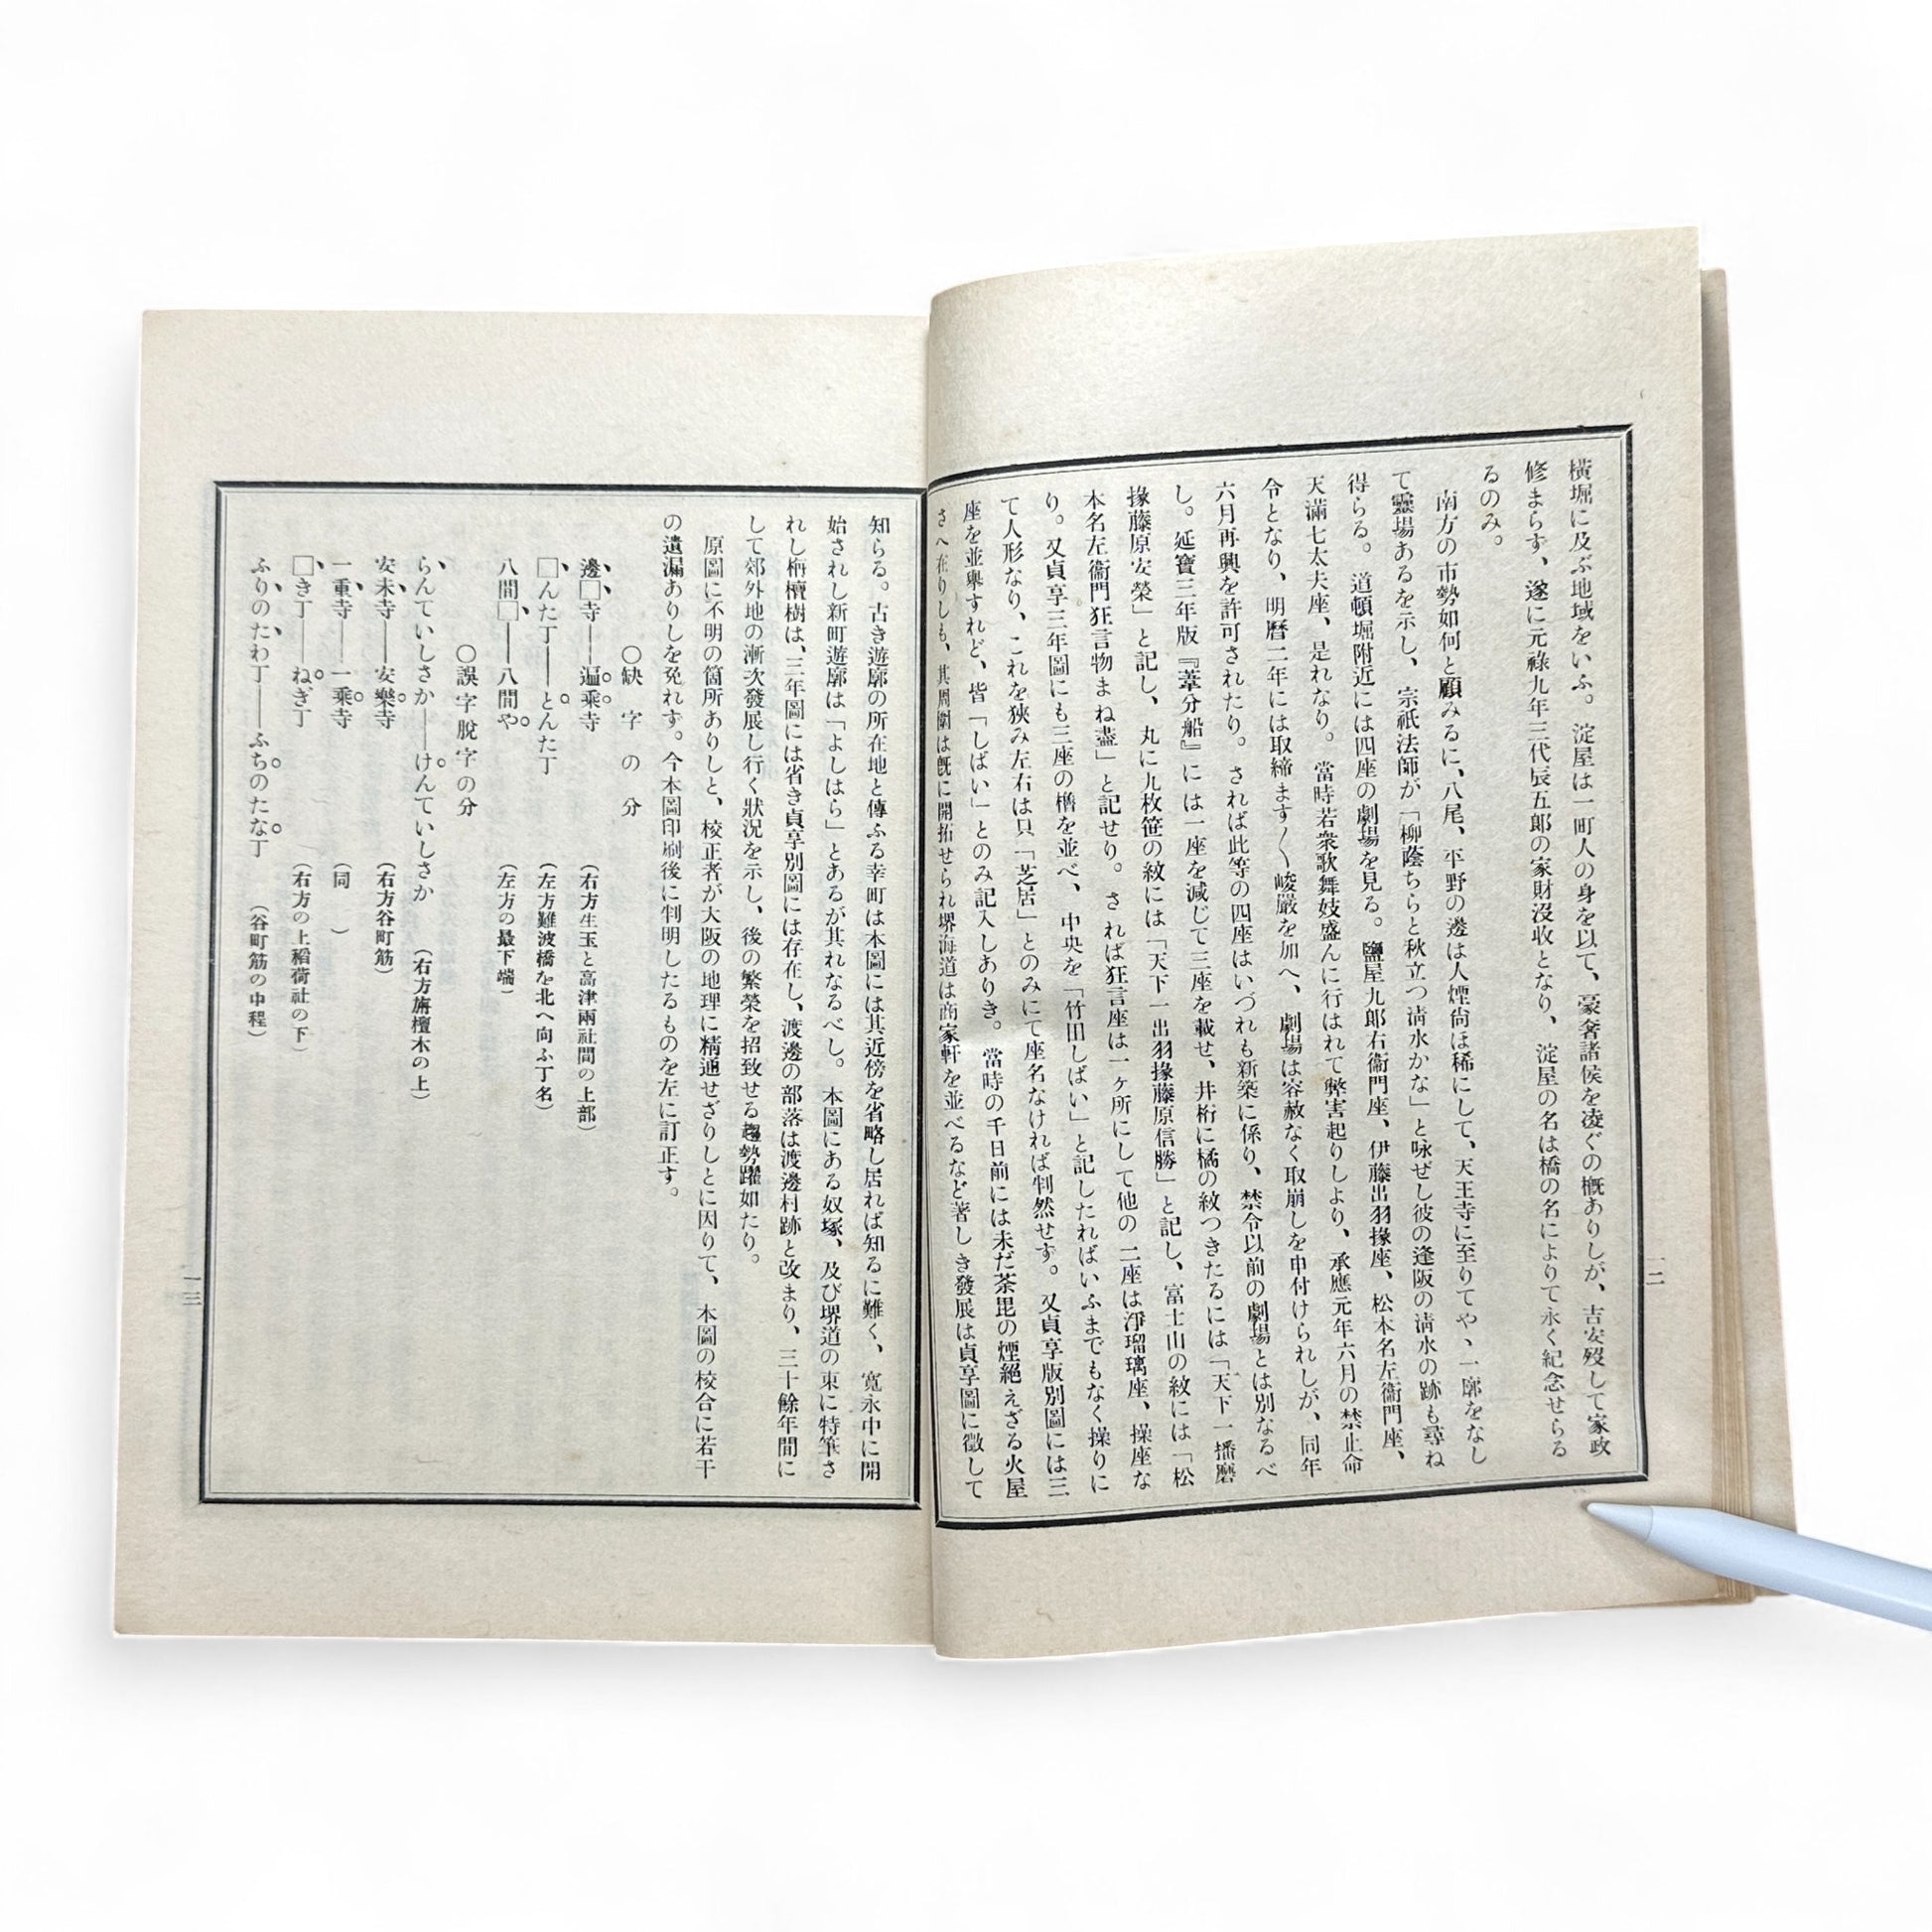 橫堀に及ぶ地域をいふ。淀屋は一町人の身を以て、豪奢諸侯を凌ぐの槪ありしが、吉安歿して家政
修まらず、遂に元祿九年三代辰五郎の家財沒收となり、淀屋の名は橋の名によりて永く紀念せらる
るのみ。
南方の市勢如何と顧みるに、八尾、平野の邊は人煙尙は稀にして、天王寺に至りてや、一廓をなし
て靈場あるを示し、宗祇法師が「柳蔭ちらと秋立つ淸水かな」と咏ぜし彼の逢阪の淸水の跡も尋ね
得らる。道頓堀附近には四座の劇場を見る。鹽屋九郎右衞門座、伊藤出羽掾座、松本名左衞門座、
天滿七太夫座、是れなり。當時若衆歌舞妓盛んに行はれて弊害起りしより、承應元年六月の禁止命
令となり、明曆二年には取締ます〱峻嚴を加へ、劇場は容赦なく取崩しを申付けられしが、同年
六月再興を許可されたり。されば此等の四座はいづれも新築に係り、禁令以前の劇場とは別なるべ
し。延寶三年版『葦分船』には一座を減じて三座を載せ、井桁に橘の紋つきたるには「天下一播磨
掾藤原安榮」と記し、丸に九枚笹の紋には「天下一出羽掾藤原信勝」と記し、富士山の紋には「松
本名左衞門狂言物まね盡」と記せり。されば狂言座は一ヶ所にして他の二座は淨瑠璃座、操座な
り。又貞享三年圖にも三座の櫓を並べ、中央を「竹田しばい」と記したればいふまでもなく操りに
て人形なり、これを狹み左右は只「芝居」とのみにて座名なければ判然せす。又貞享版別圖には三
座を並擧すれど、皆「しばい」とのみ記入しありき。當時の千日前には未だ荼毘の煙絕えざる火屋
さへ在りしも、其周圍は旣に開拓せられ堺海道は商家軒を並べるなど著しき發展は貞享圖に徵して
一二
知らる。古き遊廓の所在地と傳ふる幸町は本圖には其近傍を省略し居れば知るに難く、寬永中に開
始されし新町遊廓は「よしはら」とあるが其れなるべし。本圖にある奴塚、及び堺道の東に特筆さ
れし栴檀樹は、三年圖には省き貞享別圖には存在し、渡邊の部落は渡邊村跡と改まり、三十餘年間に
して郊外地の漸次發展し行く狀況を示し、後の繁榮を招致せる趨勢躍如たり。
原圖に不明の箇所ありしと、校正者が大阪の地理に精通せざりしとに因りて、本圖の校合に若干
の遺漏ありしを免れず。今本圖印刷後に判明したるものを左に訂正す。
○缺字の分
邊□寺――遍乘寺（右方生玉と高津兩社間の上部）
□んた丁――とんた丁（左方難波橋を北へ向ふ丁名）
八間□――八間や（左方の最下端）
○誤字脫字の分
らんていしさか――けんていしさか（右方栴檀木の上）
安未寺――安樂寺（右方谷町筋）
一重寺――一乘寺（同）
□き丁――ねぎ丁（右方の上稻荷社の下）
ふりのたわ丁――ふちのたな丁（谷町筋の中程）
一三